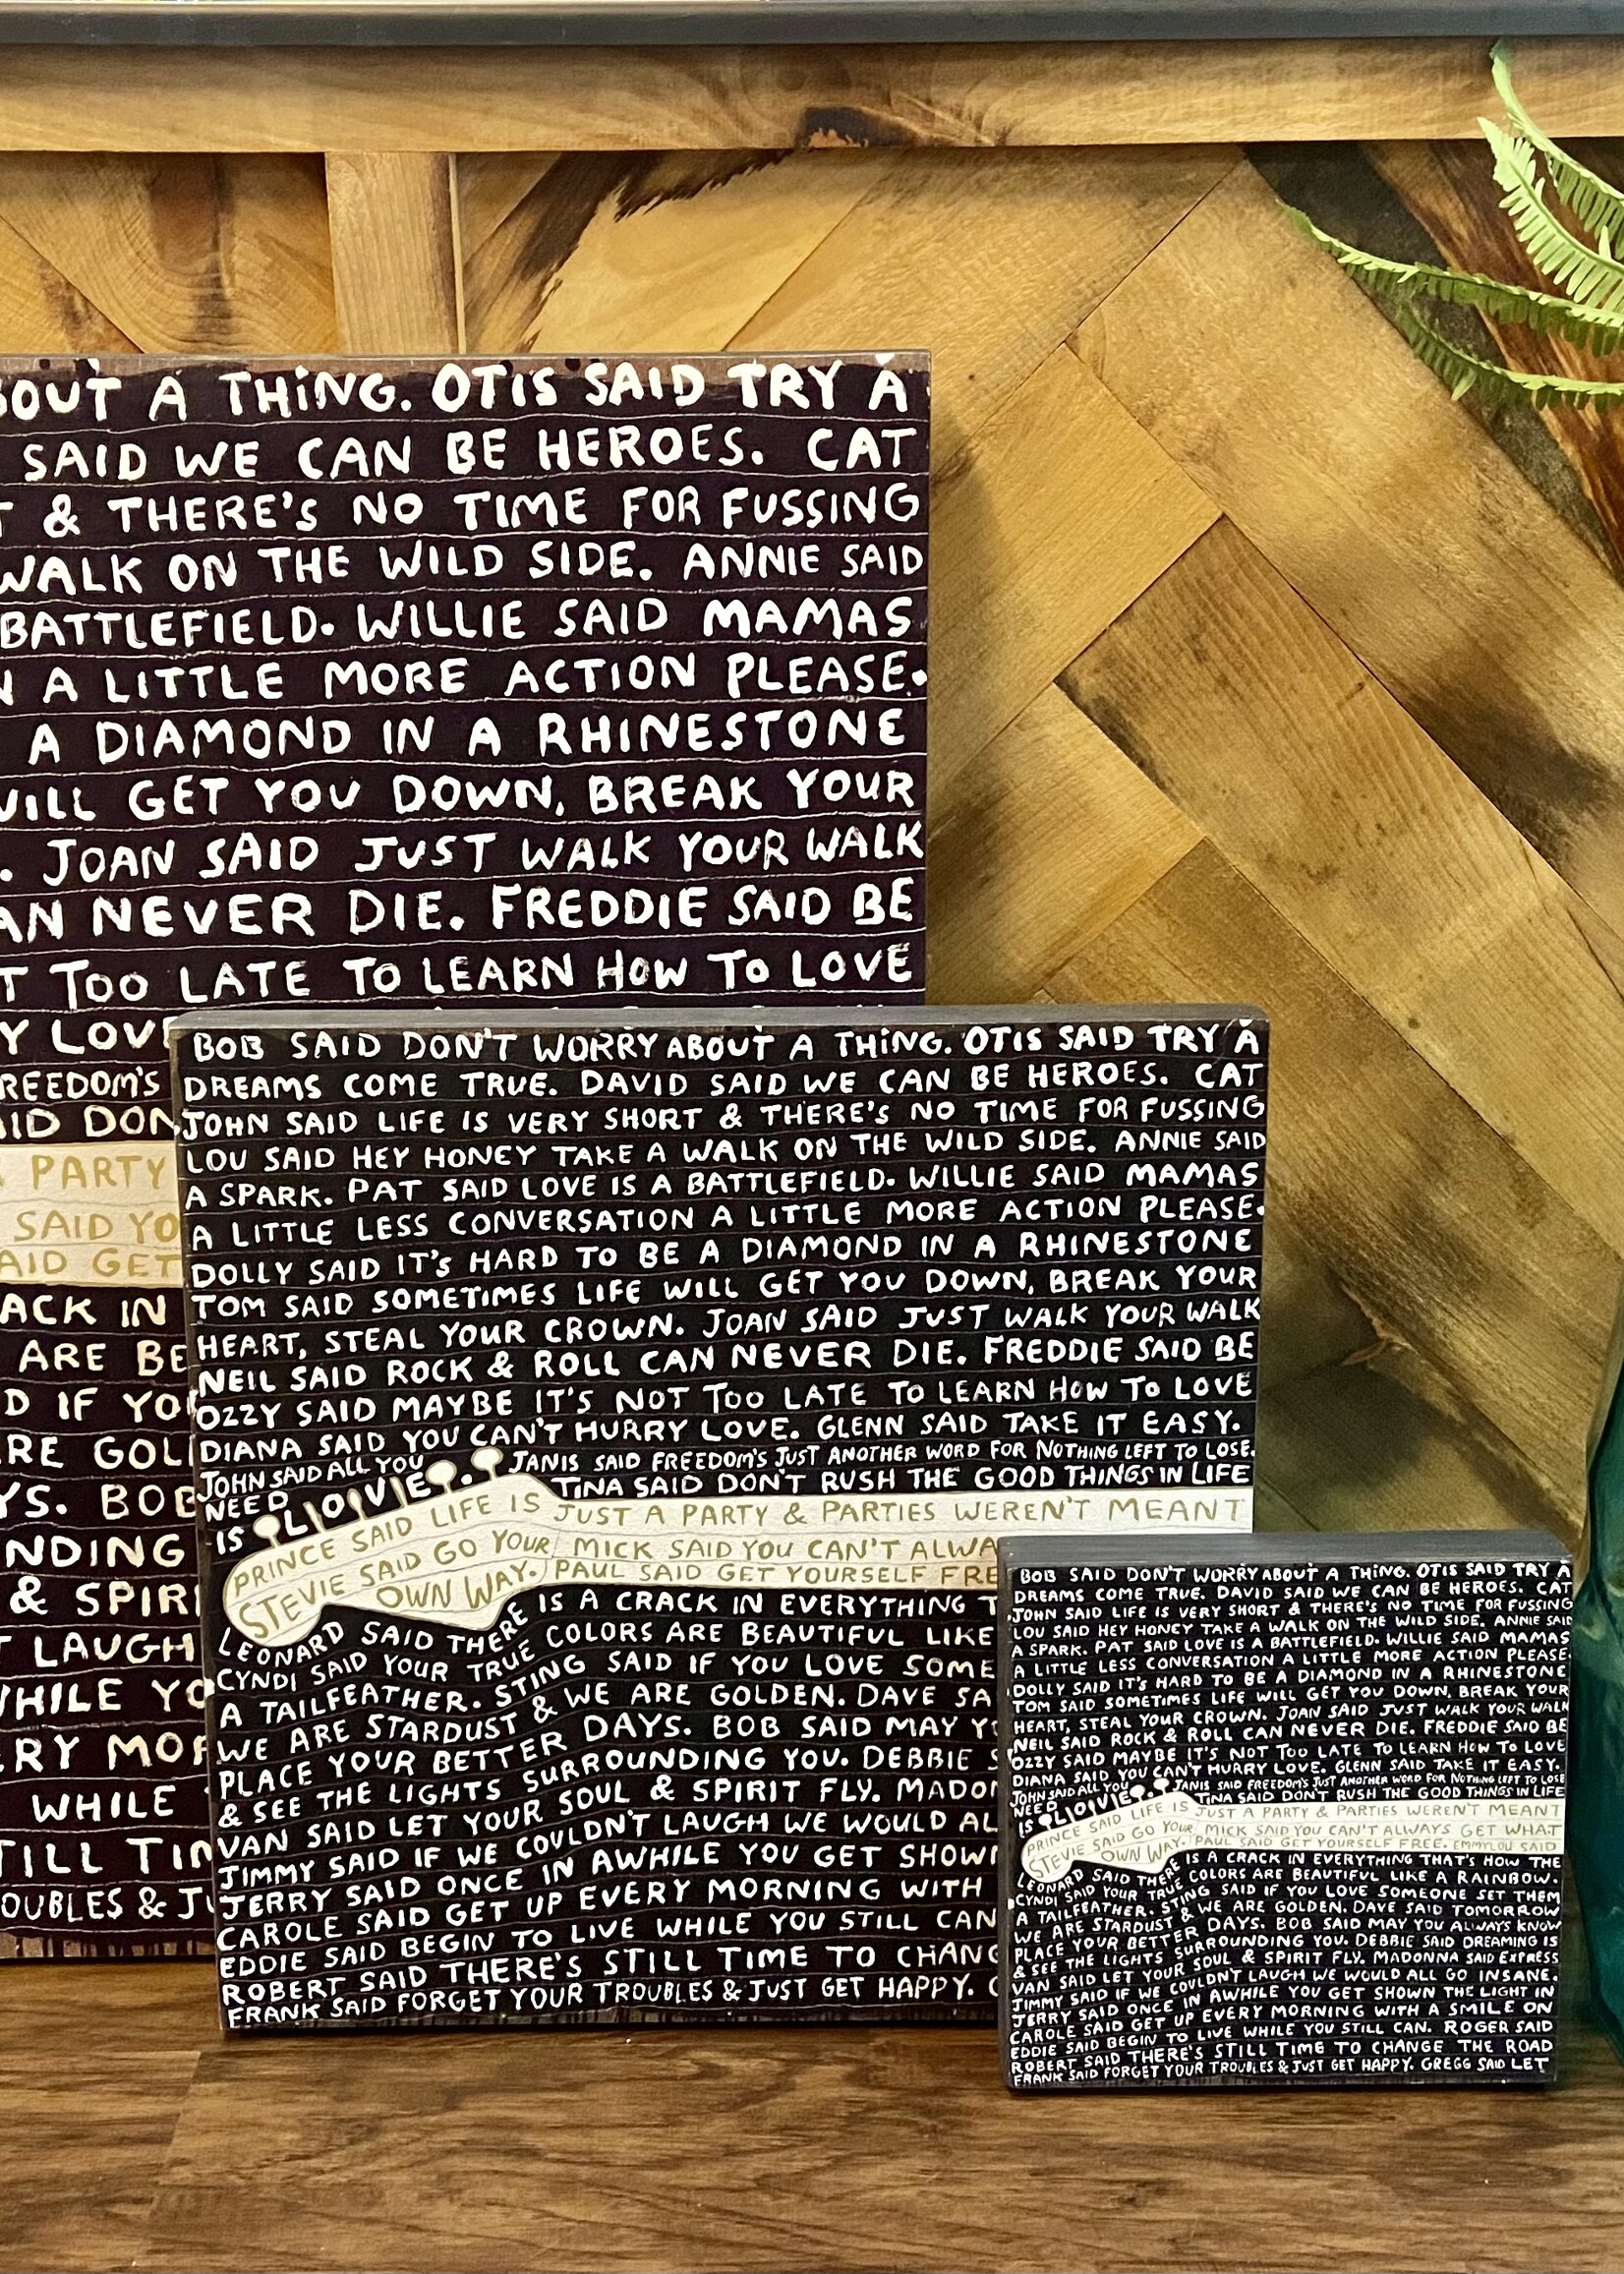 BOUT A THING. OTIS SAID TRY A
SAID WE CAN BE HEROES. CAT
T & THERE'S NO TIME FOR FUSSING
WALK ON THE WILD SIDE. ANNIE SAID
BATTLEFIELD. WILLIE SAID MAMAS
N A LITTLE MORE ACTION PLEASE.
A DIAMOND IN A RHINESTONE
WILL GET YOU DOWN, BREAK YOUR
. JOAN SAID JUST WALK YOUR WALK
AN NEVER DIE. FREDDIE SAID BE
T TOO LATE TO LEARN HOW TO LOVE
Y LOVE
REEDOM'S
AID DON
A PARTY
SAID YO
AID GET
ACK IN
ARE BE
D IF YO
RE GOL
YS. BOB
NDING
& SPIR
T LAUGH
WHILE YO
RY MOR
WHILE
TILL TIM
OUBLES & JU
BOB SAID DON'T WORRY ABOUT A THING. OTIS SAID TRY A
DREAMS COME TRUE. DAVID SAID WE CAN BE HEROES. CAT
JOHN SAID LIFE IS VERY SHORT & THERE'S NO TIME FOR FUSSING
LOU SAID HEY HONEY TAKE A WALK ON THE WILD SIDE. ANNIE SAID
A SPARK. PAT SAID LOVE IS A BATTLEFIELD. WILLIE SAID MAMAS
A LITTLE LESS CONVERSATION A LITTLE MORE ACTION PLEASE.
DOLLY SAID IT'S HARD TO BE A DIAMOND IN A RHINESTONE
TOM SAID SOMETIMES LIFE WILL GET YOU DOWN, BREAK YOUR
HEART, STEAL YOUR CROWN. JOAN SAID JUST WALK YOUR WALK
NEIL SAID ROCK & ROLL CAN NEVER DIE. FREDDIE SAID BE
OZZY SAID MAYBE IT'S NOT TOO LATE TO LEARN HOW TO LOVE
DIANA SAID YOU CAN'T HURRY LOVE. GLENN SAID TAKE IT EASY.
JOHN SAID ALL YOU JANIS SAID FREEDOM'S JUST ANOTHER WORD FOR NOTHING LEFT TO LOSE.
NEED TINA SAID DON'T RUSH THE GOOD THINGS IN LIFE
IS LOVE.
PRINCE SAID LIFE IS JUST A PARTY & PARTIES WEREN'T MEANT
STEVIE SAID GO YOUR MICK SAID YOU CAN'T ALWA
OWN WAY. PAUL SAID GET YOURSELF FRE
LEONARD SAID THERE IS A CRACK IN EVERYTHING T
CYNDI SAID YOUR TRUE COLORS ARE BEAUTIFUL LIKE
A TAILFEATHER. STING SAID IF YOU LOVE SOME
WE ARE STARDUST & WE ARE GOLDEN. DAVE SA
PLACE YOUR BETTER DAYS. BOB SAID MAY Y
& SEE THE LIGHTS SURROUNDING YOU. DEBBIE S
VAN SAID LET YOUR SOUL & SPIRIT FLY. MADON
JIMMY SAID IF WE COULDN'T LAUGH WE WOULD AL
JERRY SAID ONCE IN AWHILE YOU GET SHOWN
CAROLE SAID GET UP EVERY MORNING WITH
EDDIE SAID BEGIN TO LIVE WHILE YOU STILL CAN
ROBERT SAID THERE'S STILL TIME TO CHANG
FRANK SAID FORGET YOUR TROUBLES & JUST GET HAPPY. G
BOB SAID DON'T WORRY ABOUT A THING. OTIS SAID TRY A
DREAMS COME TRUE. DAVID SAID WE CAN BE HEROES. CAT
JOHN SAID LIFE IS VERY SHORT & THERE'S NO TIME FOR FUSSING
LOU SAID HEY HONEY TAKE A WALK ON THE WILD SIDE. ANNIE SAID
A SPARK. PAT SAID LOVE IS A BATTLEFIELD. WILLIE SAID MAMAS
A LITTLE LESS CONVERSATION A LITTLE MORE ACTION PLEASE.
DOLLY SAID IT'S HARD TO BE A DIAMOND IN A RHINESTONE
TOM SAID SOMETIMES LIFE WILL GET YOU DOWN, BREAK YOUR
HEART, STEAL YOUR CROWN. JOAN SAID JUST WALK YOUR WALK
NEIL SAID ROCK & ROLL CAN NEVER DIE. FREDDIE SAID BE
OZZY SAID MAYBE IT'S NOT TOO LATE TO LEARN HOW TO LOVE
DIANA SAID YOU CAN'T HURRY LOVE. GLENN SAID TAKE IT EASY.
JOHN SAID ALL YOU JANIS SAID FREEDOM'S JUST ANOTHER WORD FOR NOTHING LEFT TO LOSE
NEED TINA SAID DON'T RUSH THE GOOD THINGS IN LIFE
IS LOVE.
PRINCE SAID LIFE IS JUST A PARTY & PARTIES WEREN'T MEANT
STEVIE SAID GO YOUR MICK SAID YOU CAN'T ALWAYS GET WHAT
OWN WAY. PAUL SAID GET YOURSELF FREE. EMMYLOU SAID
LEONARD SAID THERE IS A CRACK IN EVERYTHING THAT'S HOW THE
CYNDI SAID YOUR TRUE COLORS ARE BEAUTIFUL LIKE A RAINBOW.
A TAILFEATHER. STING SAID IF YOU LOVE SOMEONE SET THEM
WE ARE STARDUST & WE ARE GOLDEN. DAVE SAID TOMORROW
PLACE YOUR BETTER DAYS. BOB SAID MAY YOU ALWAYS KNOW
& SEE THE LIGHTS SURROUNDING YOU. DEBBIE SAID DREAMING IS
VAN SAID LET YOUR SOUL & SPIRIT FLY. MADONNA SAID EXPRESS
JIMMY SAID IF WE COULDN'T LAUGH WE WOULD ALL GO INSANE.
JERRY SAID ONCE IN AWHILE YOU GET SHOWN THE LIGHT IN
CAROLE SAID GET UP EVERY MORNING WITH A SMILE ON
EDDIE SAID BEGIN TO LIVE WHILE YOU STILL CAN. ROGER SAID
ROBERT SAID THERE'S STILL TIME TO CHANGE THE ROAD
FRANK SAID FORGET YOUR TROUBLES & JUST GET HAPPY. GREGG SAID LET